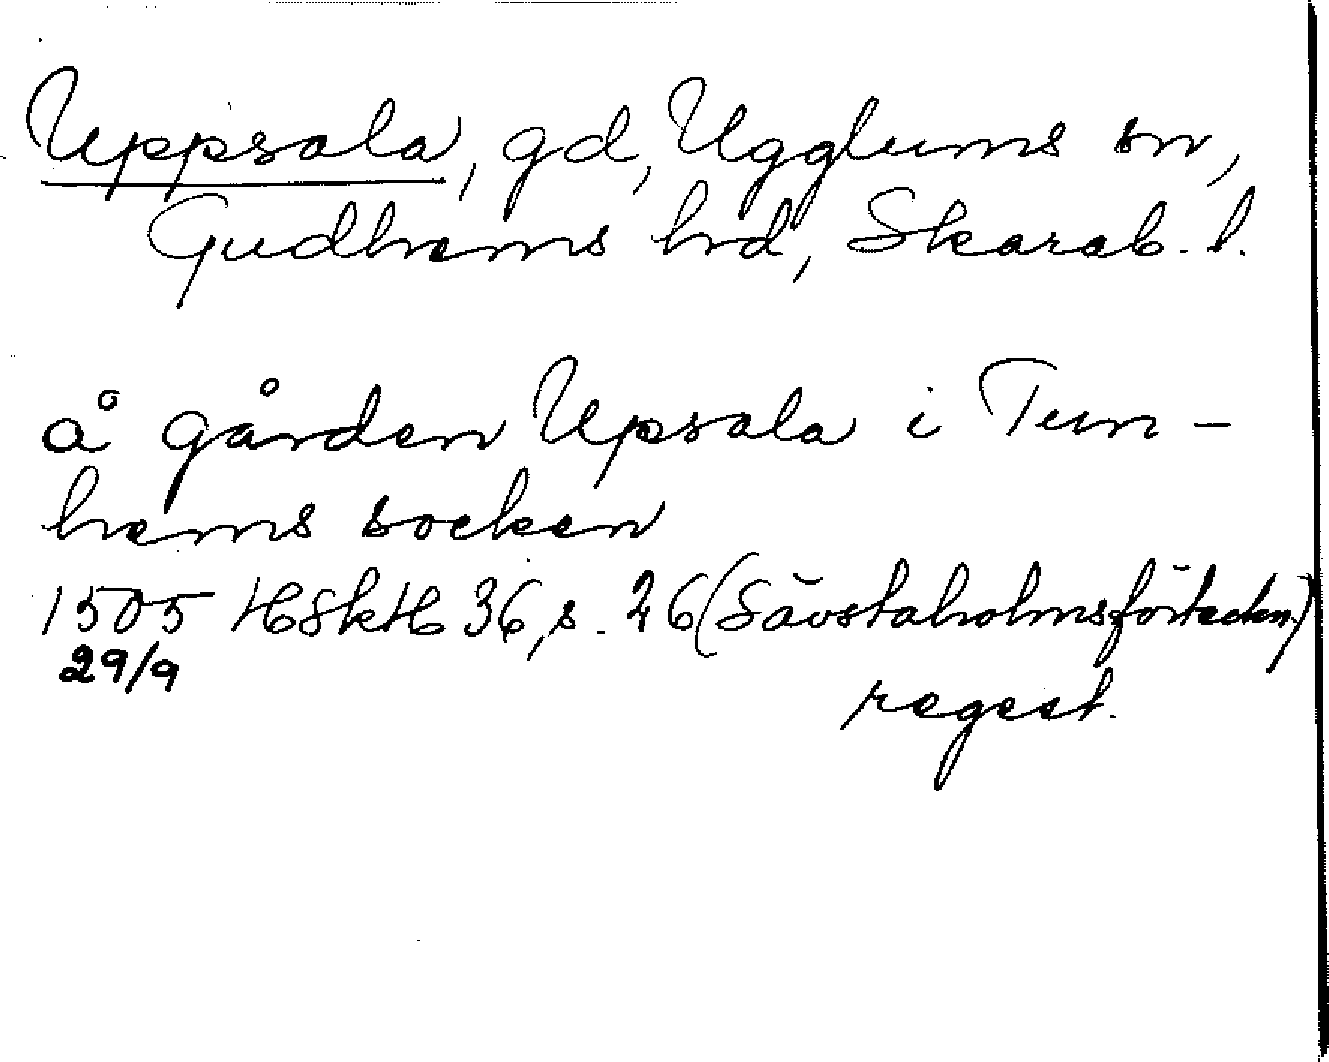 Uppsala, gd, Ugglums sn,
Gudhems hrd, Skarab. l.
å gården Upsala i Tun-
hems socken
1505 HSkH 36, s. 26 (Sävstaholmsförteckn.)
29/9
regest.